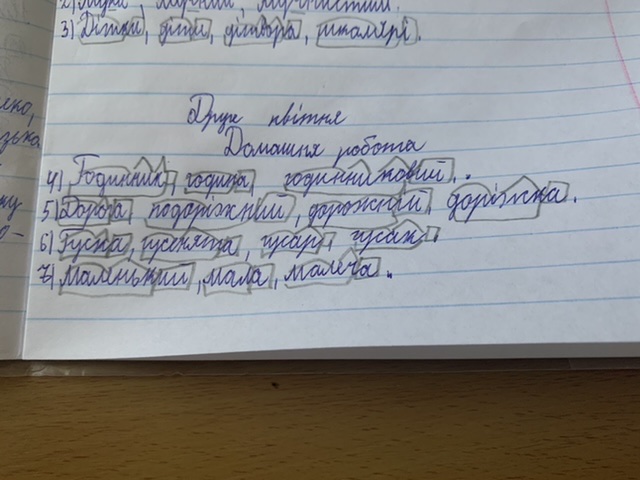 2) 
3) Дітки, діти, дітвора, школярі.
Друге квітня
Домашня робота
4) Годинник, година, годинниковий.
5) Дорога, подорожній, дорожній, доріжка.
6) Гуска, гусенята, гусар, гусак.
7) Маленький, мала, малеча.